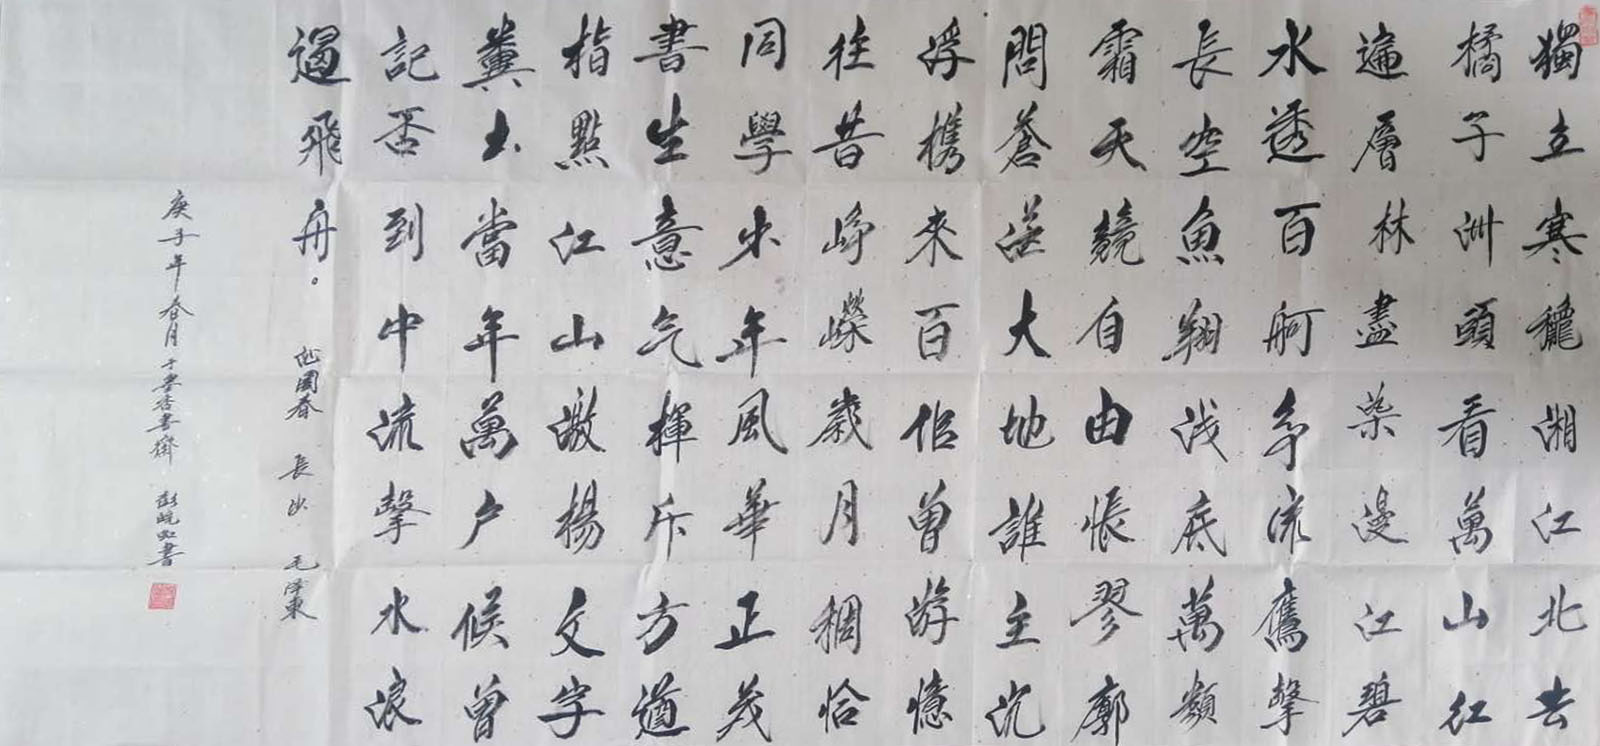 獨立寒龝湘江北去
橘子洲頭看萬山紅
遍層林盡染漫江碧
水透百舸争流鷹擊
長空魚翔浅底萬類
霜天競自由悵翏廓
問蒼茫大地誰主沉
浮携來百侣曾游憶
往昔崢嶸歲月稠恰
同學少年風華正茂
書生意气揮斥方遒
指點江山激揚文字
糞土當年萬户候曾
記否到中流擊水浪
遏飛舟。 沁園春 長沙 毛泽東
庚子年春月于香書齋 彭書